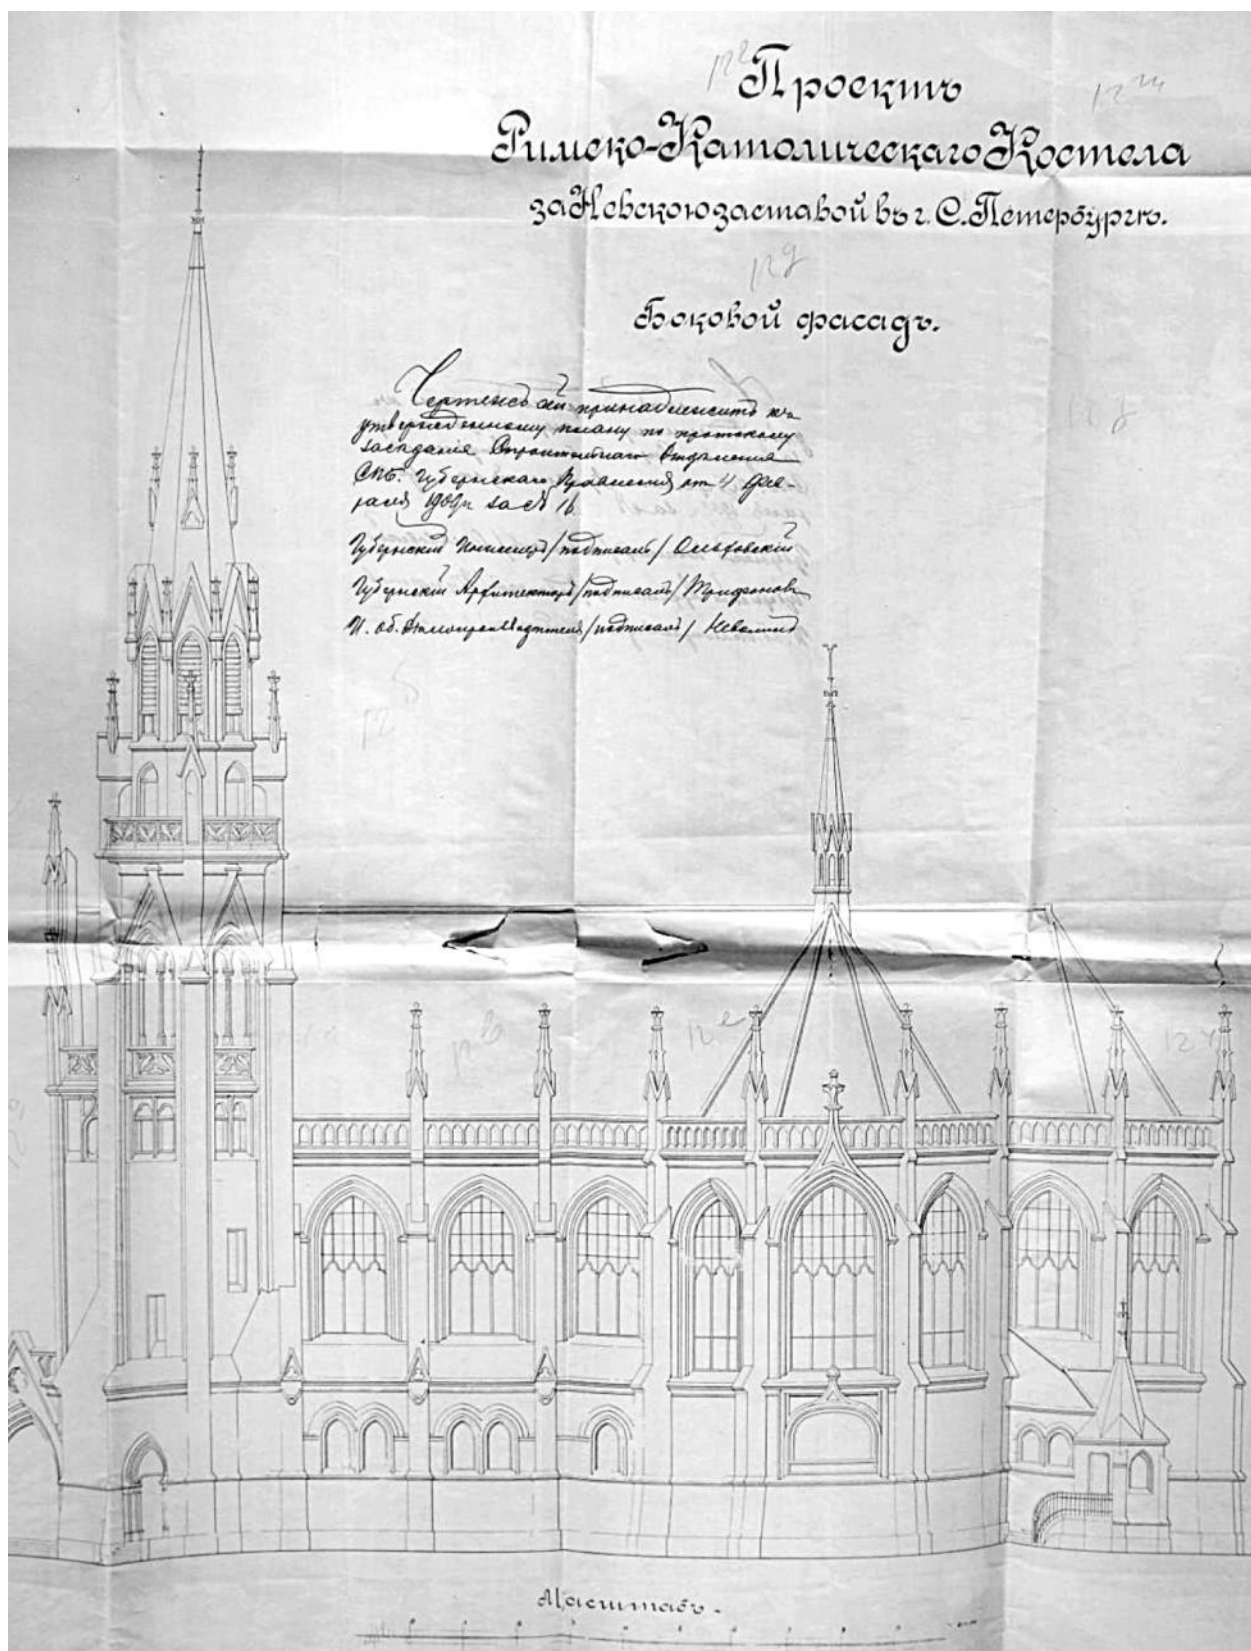 Проектъ
Римско-Католическаго Костела
за Невскою заставой въ г. С. Петербургѣ.
Боковой фасадъ.
Чертежъ сей принадлежитъ къ
утвержденному плану по протоколу
заседанія Строительнаго Отдѣленія
СПБ. Губернскаго Правленія от 4 Фев-
раля 1909 г. за № 16
Губернскій Инженеръ /подписалъ/
Губернскій Архитекторъ /подписалъ/ Трифоновъ
И. об. Дѣлопроизводителя /подписалъ/
Масштабъ.